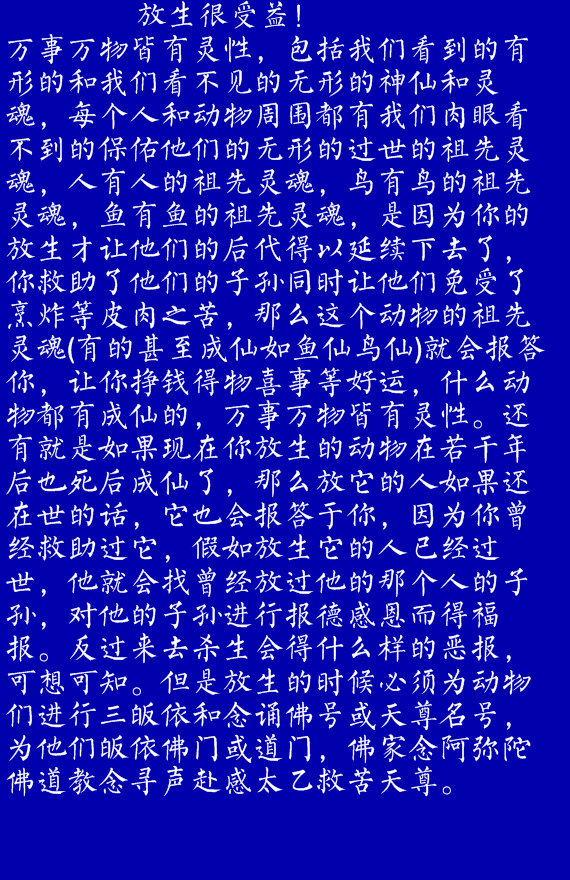 放生很受益!
万事万物皆有灵性，包括我们看到的有
形的和我们看不见的无形的神仙和灵
魂，每个人和动物周围都有我们肉眼看
不到的保佑他们的无形的过世的祖先灵
魂，人有人的祖先灵魂，鸟有鸟的祖先
灵魂，鱼有鱼的祖先灵魂，是因为你的
放生才让他们的后代得以延续下去了，
你救助了他们的子孙同时让他们免受了
烹炸等皮肉之苦，那么这个动物的祖先
灵魂(有的甚至成仙如鱼仙鸟仙)就会报答
你，让你挣钱得物喜事等好运，什么动
物都有成仙的，万事万物皆有灵性。还
有就是如果现在你放生的动物在若干年
后也死后成仙了，那么放它的人如果还
在世的话，它也会报答于你，因为你曾
经救助过它，假如放生它的人已经过
世，他就会找曾经放过他的那个人的子
孙，对他的子孙进行报德感恩而得福
报。反过来去杀生会得什么样的恶报，
可想可知。但是放生的时候必须为动物
们进行三皈依和念诵佛号或天尊名号，
为他们皈依佛门或道门，佛家念阿弥陀
佛道教念寻声赴感太乙救苦天尊。